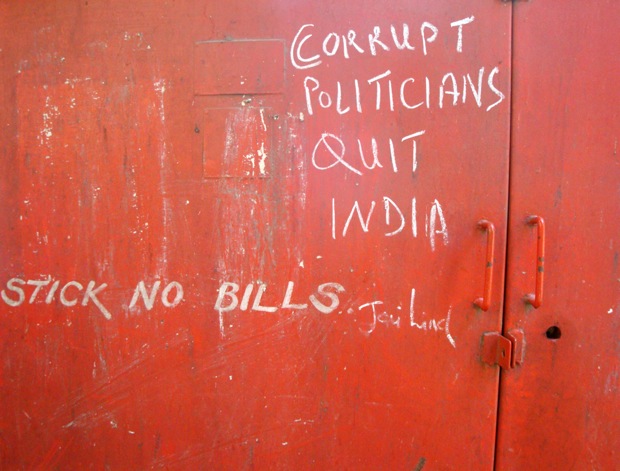 CORRUPT
POLITICIANS
QUIT
INDIA
STICK NO BILLS.
Jai Hind